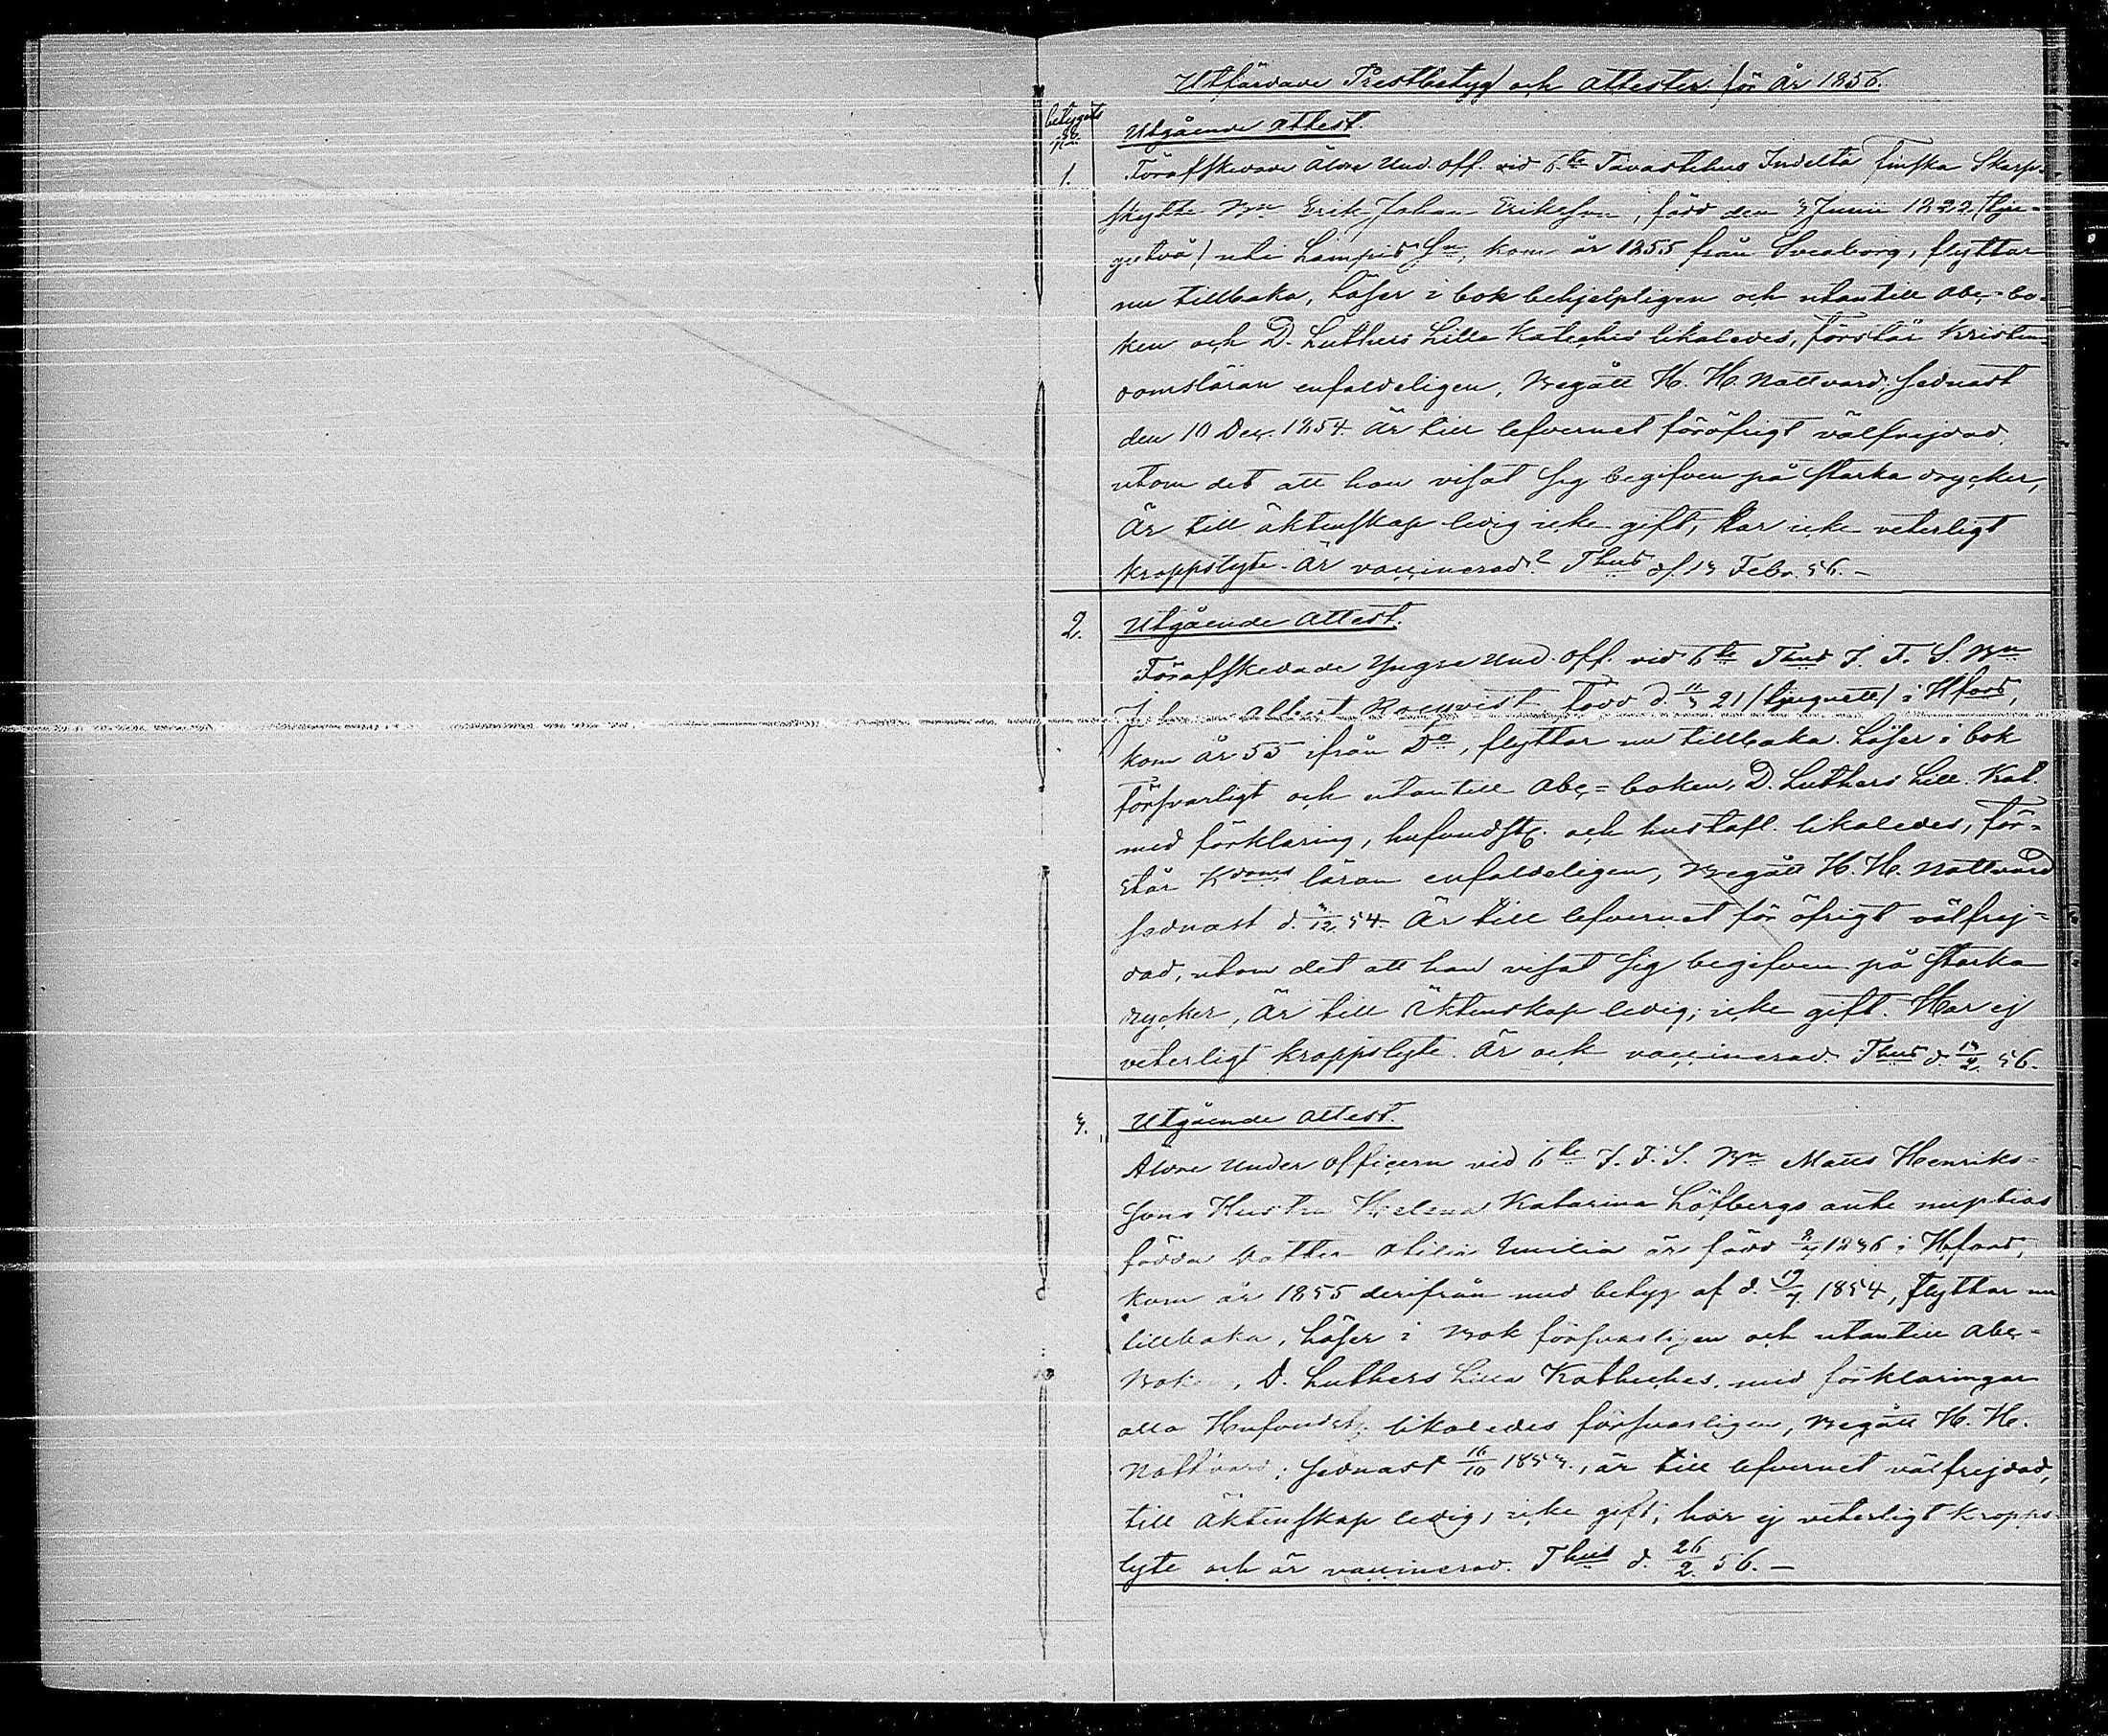 Utfärdade Prestbetyg och Attester för år 1856.
betygets
N:o
Utgående Attest.
1. Förafskedade Äldre Und. Off. vid 6:te Tavastehus Indelta Finska Skarp-
skytte B:n Erik Johan Erikson, född den 3 Junii 1822 (tju-
gutvå) uti Lampis S:n, kom år 1855 från Sveaborg, flyttar
nu tillbaka, Läser i bok behjelpligen och utantill Abc-bo-
ken och D. Luthers Lilla Kateches likaledes, förstår Kristen-
domsläran enfaldeligen, Begått H. H. Nattvard, sednast
den 10 Dec. 1854. Är till lefvernet föröfrigt välfrejdad,
utom det att han visat sig begifven på starka drycker,
Är till äktenskap ledig icke gift, har icke veterligt
kroppslyte. Är vaccinerad? Thus d. 13 Febr. 56.-
2. Utgående Attest.
Förafskedade Yngre Und. Off. vid 6:te Thus I. F. S. B:n
Albert född d. 11/3 21 (tjuguett) i Hfors,
kom år 55 ifrån D:o, flyttar nu tillbaka. Läser i bok
försvarligt och utantill Abc-boken, D. Luthers Lill. Kat.
med förklaring, hufvudst. och hustafl. likaledes, för-
står Kdoms läran enfaldeligen, Begått H. H. Nattvard
sednast d. 3/12 54. Är till lefvernet för öfrigt välfrej-
dad, utom det att han visat sig begifven på starka
drycker, Är till Äktenskap ledig; icke gift. Har ej
veterligt kroppslyte. Är och vaccinerad Thus d. 13/2 56.
3. Utgående Attest.
Äldre Under officern vid 6:te I. F. S. B:n Matts Henriks-
sons Hustru Helena Katarina Löfbergs ante nuptias
födda dotter Otilia Emilia är född 1836 i Hfors,
kom år 1855 derifrån med betyg af d. 19/7 1854, flyttar nu
tillbaka, Läser i Bok försvarligen och utantill Abc-
Boken, D. Luthers Lilla Katheches. med förklaringar
alla Hufvudst. likaledes försvarligen, Begått H. H.
Nattvard; sednast 16/10 1853., är till lefvernet välfrejdad,
till Äktenskap ledig, icke gift, har ej veterligt kropps-
lyte och är vaccinerad. Thus d. 26/2 56.-